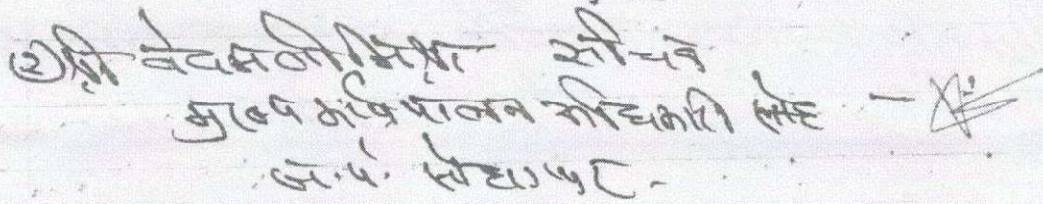 (2) श्री वेदमणी मिश्रा सचिव
मुख्य कार्यपालन अधिकारी -
ज.पं. सोहागपुर -